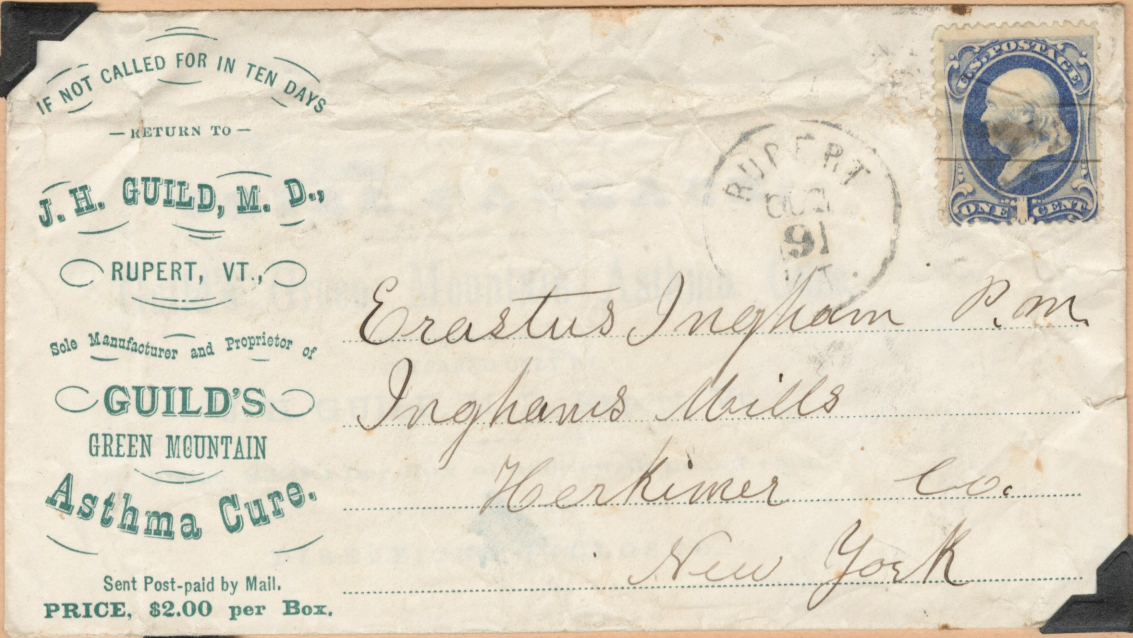 IF NOT CALLED FOR IN TEN DAYS
RETURN TO
J. H. GUILD, M. D.,
RUPERT, VT.,
Sole Manufacturer and Proprietor of
GUILD'S
GREEN MOUNTAIN
Asthma Cure.
Sent Post-paid by Mail.
PRICE, $2.00 per Box.
U.S. POSTAGE
ONE 1 CENT
RUPERT
VT.
Erastus Ingham P.M.
Inghams Mills
Herkimer Co.
New York